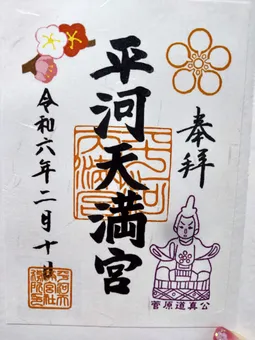 奉拝
平河天満宮
令和六年二月十日
菅原道真公